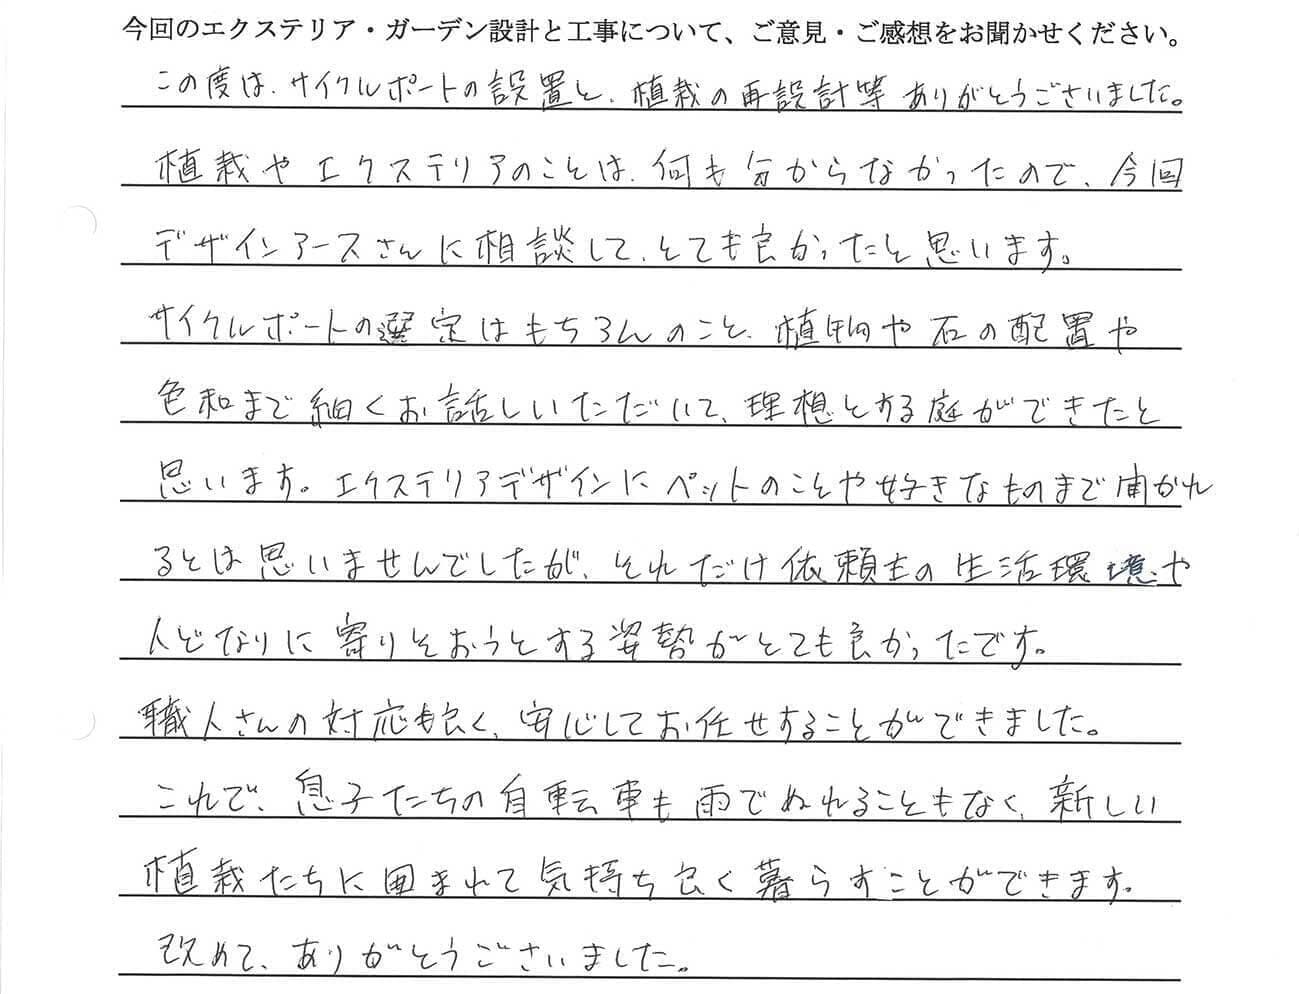 今回のエクステリア・ガーデン設計と工事について、ご意見・ご感想をお聞かせください。
この度は、サイクルポートの設置と、植栽の再設計等ありがとうございました。
植栽やエクステリアのことは、何も分からなかったので、今回
デザインアースさんに相談して、とても良かったと思います。
サイクルポートの選定はもちろんのこと、植物や石の配置や
色和まで細くお話しいただいて、理想とする庭ができたと
思います。エクステリアデザインにペットのことや好きなものまで聞かれ
るとは思いませんでしたが、それだけ依頼主の生活環境や
人となりに寄りそおうとする姿勢がとても良かったです。
職人さんの対応も良く、安心してお任せすることができました。
これで、息子たちの自転車も雨でぬれることもなく、新しい
植栽たちに囲まれて気持ち良く暮らすことができます。
改めて、ありがとうございました。